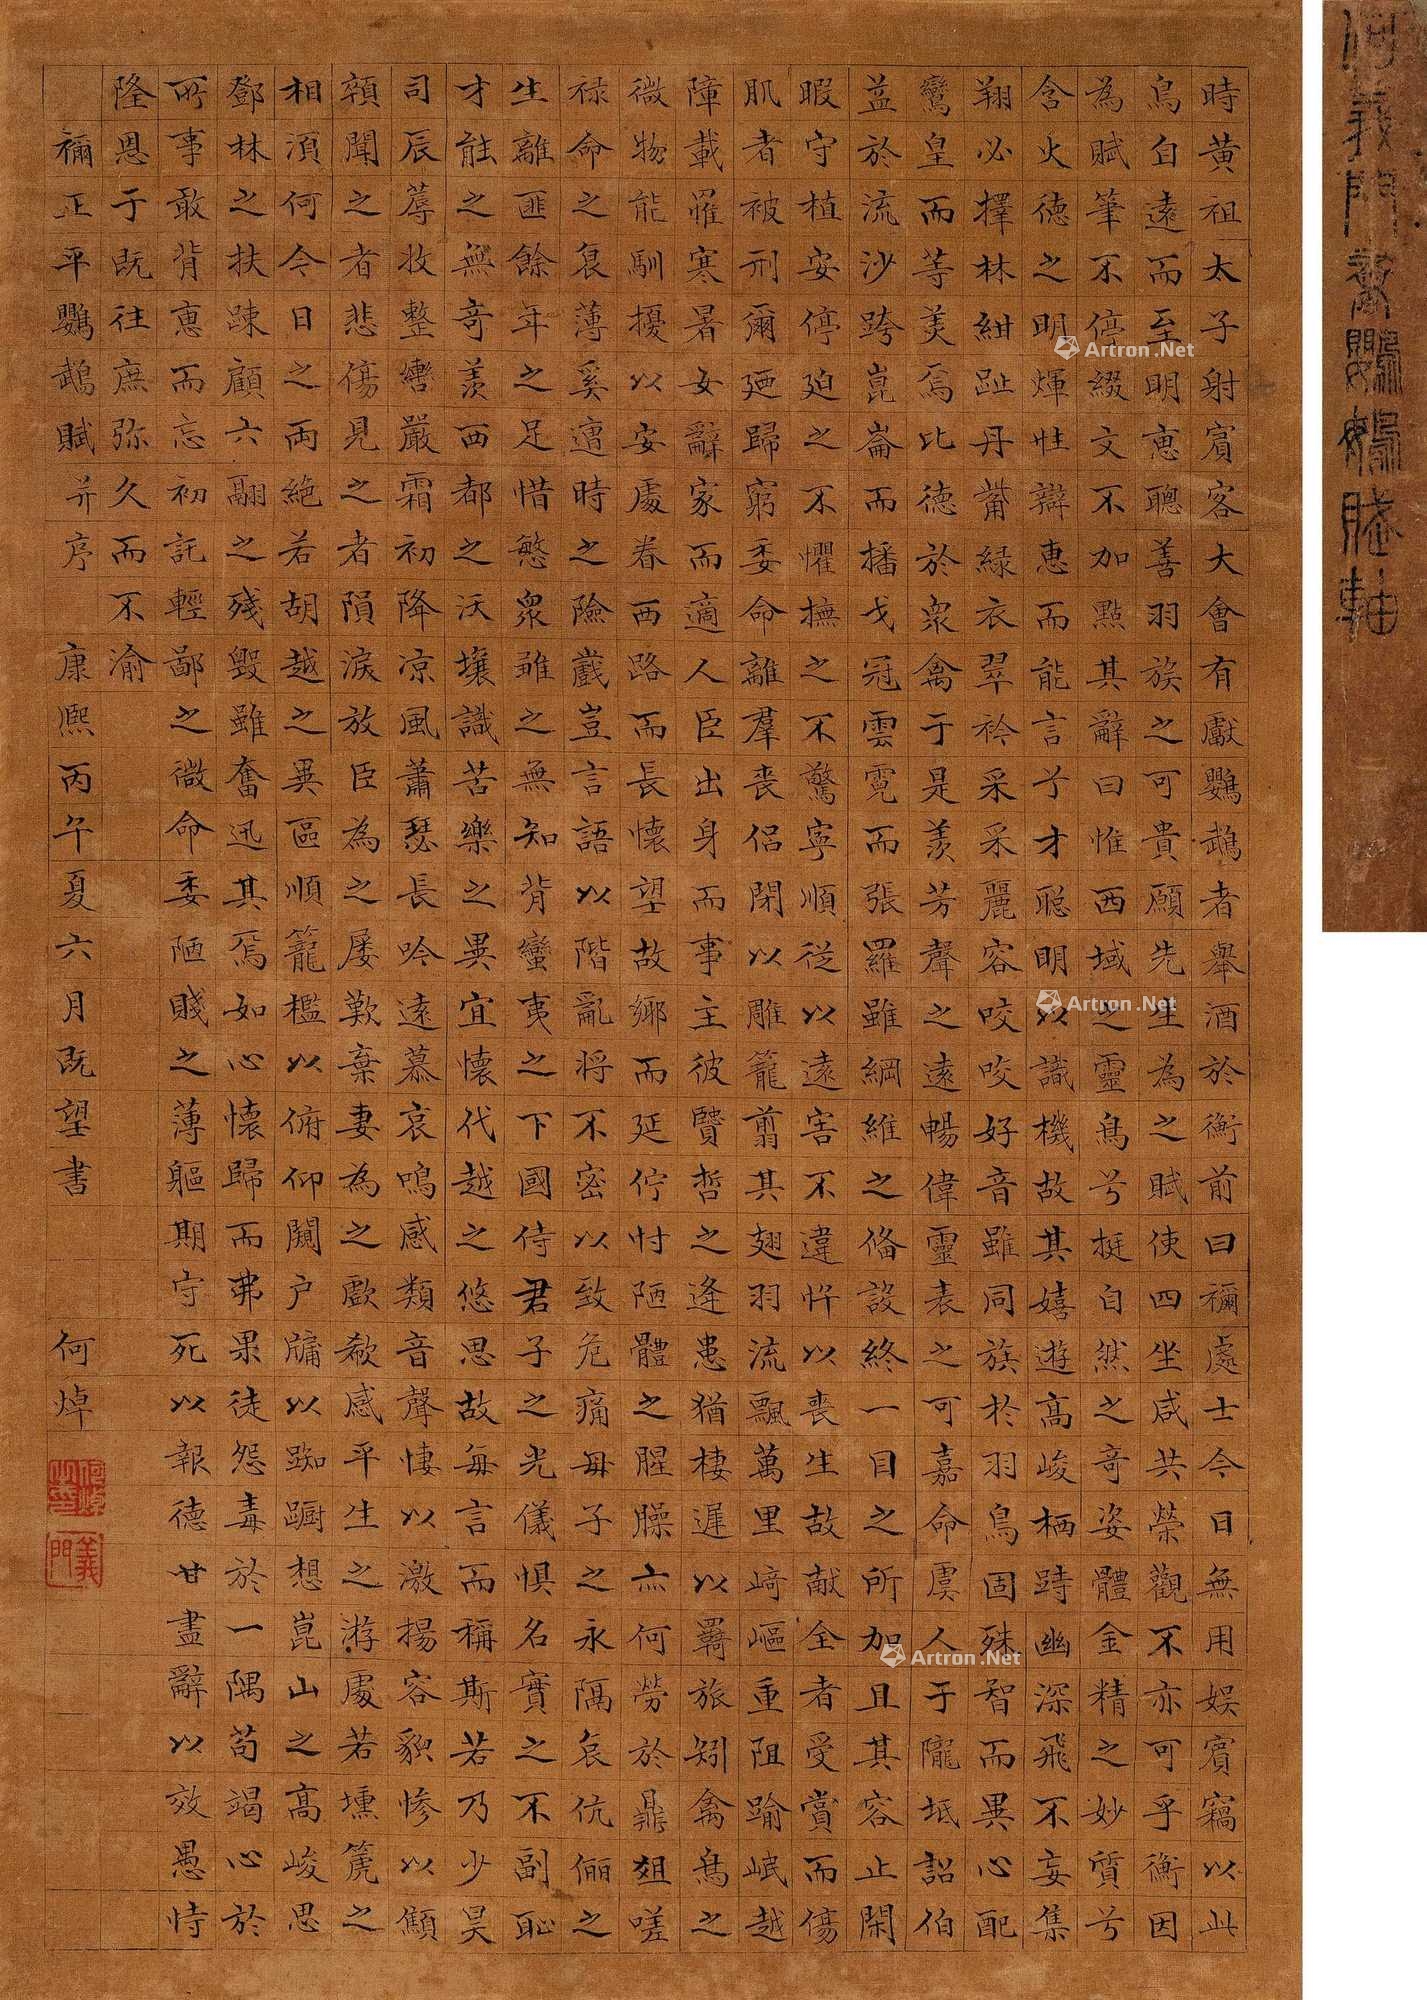 時黃祖太子射賓客大會有獻鸚鵡者舉酒於衡前曰禰處士今日無用娛賓竊以此
鳥自遠而至明惠聰善羽族之可貴願先生為之賦使四坐咸共榮觀不亦可乎衡因
為賦筆不停綴文不加點其辭曰惟西域之靈鳥兮挺自然之奇姿體金精之妙質兮
含火德之明煇性辯惠而能言兮才聡明以識機故其嬉遊高峻栖跱幽深飛不妄集
翔必擇林紺趾丹觜緑衣翠衿采采麗容咬咬好音雖同族於羽鳥固殊智而異心配
鸞皇而等羙焉比德於衆禽于是羨芳聲之遠暢偉靈表之可嘉命虞人于隴坻詔伯
益於流沙跨崑崙而播弋冠雲霓而張羅雖綱維之俻設終一目之所加且其容止閑
暇守植安停廹之不懼撫之不驚寧順從以遠害不違忤以喪生故献全者受賞而傷
肌者被刑爾廼歸窮委命離羣喪侣閉以雕籠翦其翅羽流飄萬里崎嶇重阻踰岷越
障載罹寒暑女辭家而適人臣出身而事主彼賢哲之逢患猶棲遲以羇旅矧禽鳥之
微物能馴擾以安處眷西路而長懷望故鄉而延佇忖陋體之腥臊亦何勞於鼎俎嗟
禄命之衰薄奚遭時之險巇豈言語以階亂将不密以致危痛母子之永隔哀伉儷之
生離匪餘年之足惜慜衆雛之無知背蠻夷之下國侍君子之光儀惧名實之不副恥
才能之無奇羨西都之沃壤識苦樂之異宜懷代越之悠思故每言而稱斯若乃少昊
司辰蓐收整轡嚴霜初降凉風蕭瑟長吟遠慕哀鳴感類音聲悽以激揚容貌惨以顦
顇聞之者悲傷見之者隕淚放臣為之屡歎棄妻為之歔欷感平生之游處若壎箎之
相湏何今日之兩絶若胡越之異區順籠檻以俯仰闚户牗以踟蹰想崑山之高峻思
鄧林之扶踈顧六翮之殘毁雖奮迅其焉如心懷歸而弗果徒怨毒於一隅苟竭心於
所事敢背惠而忘初託輕鄙之微命委陋賤之薄軀期守死以報德甘盡辭以效愚恃
隆恩于既往庶弥久而不渝
禰正平鸚鵡賦并序 康熙丙午夏六月既望書 何焯
何焯之印
義門
何義門書鸚鵡賦軸
Artron.Net
Artron.Net
Artron.Net